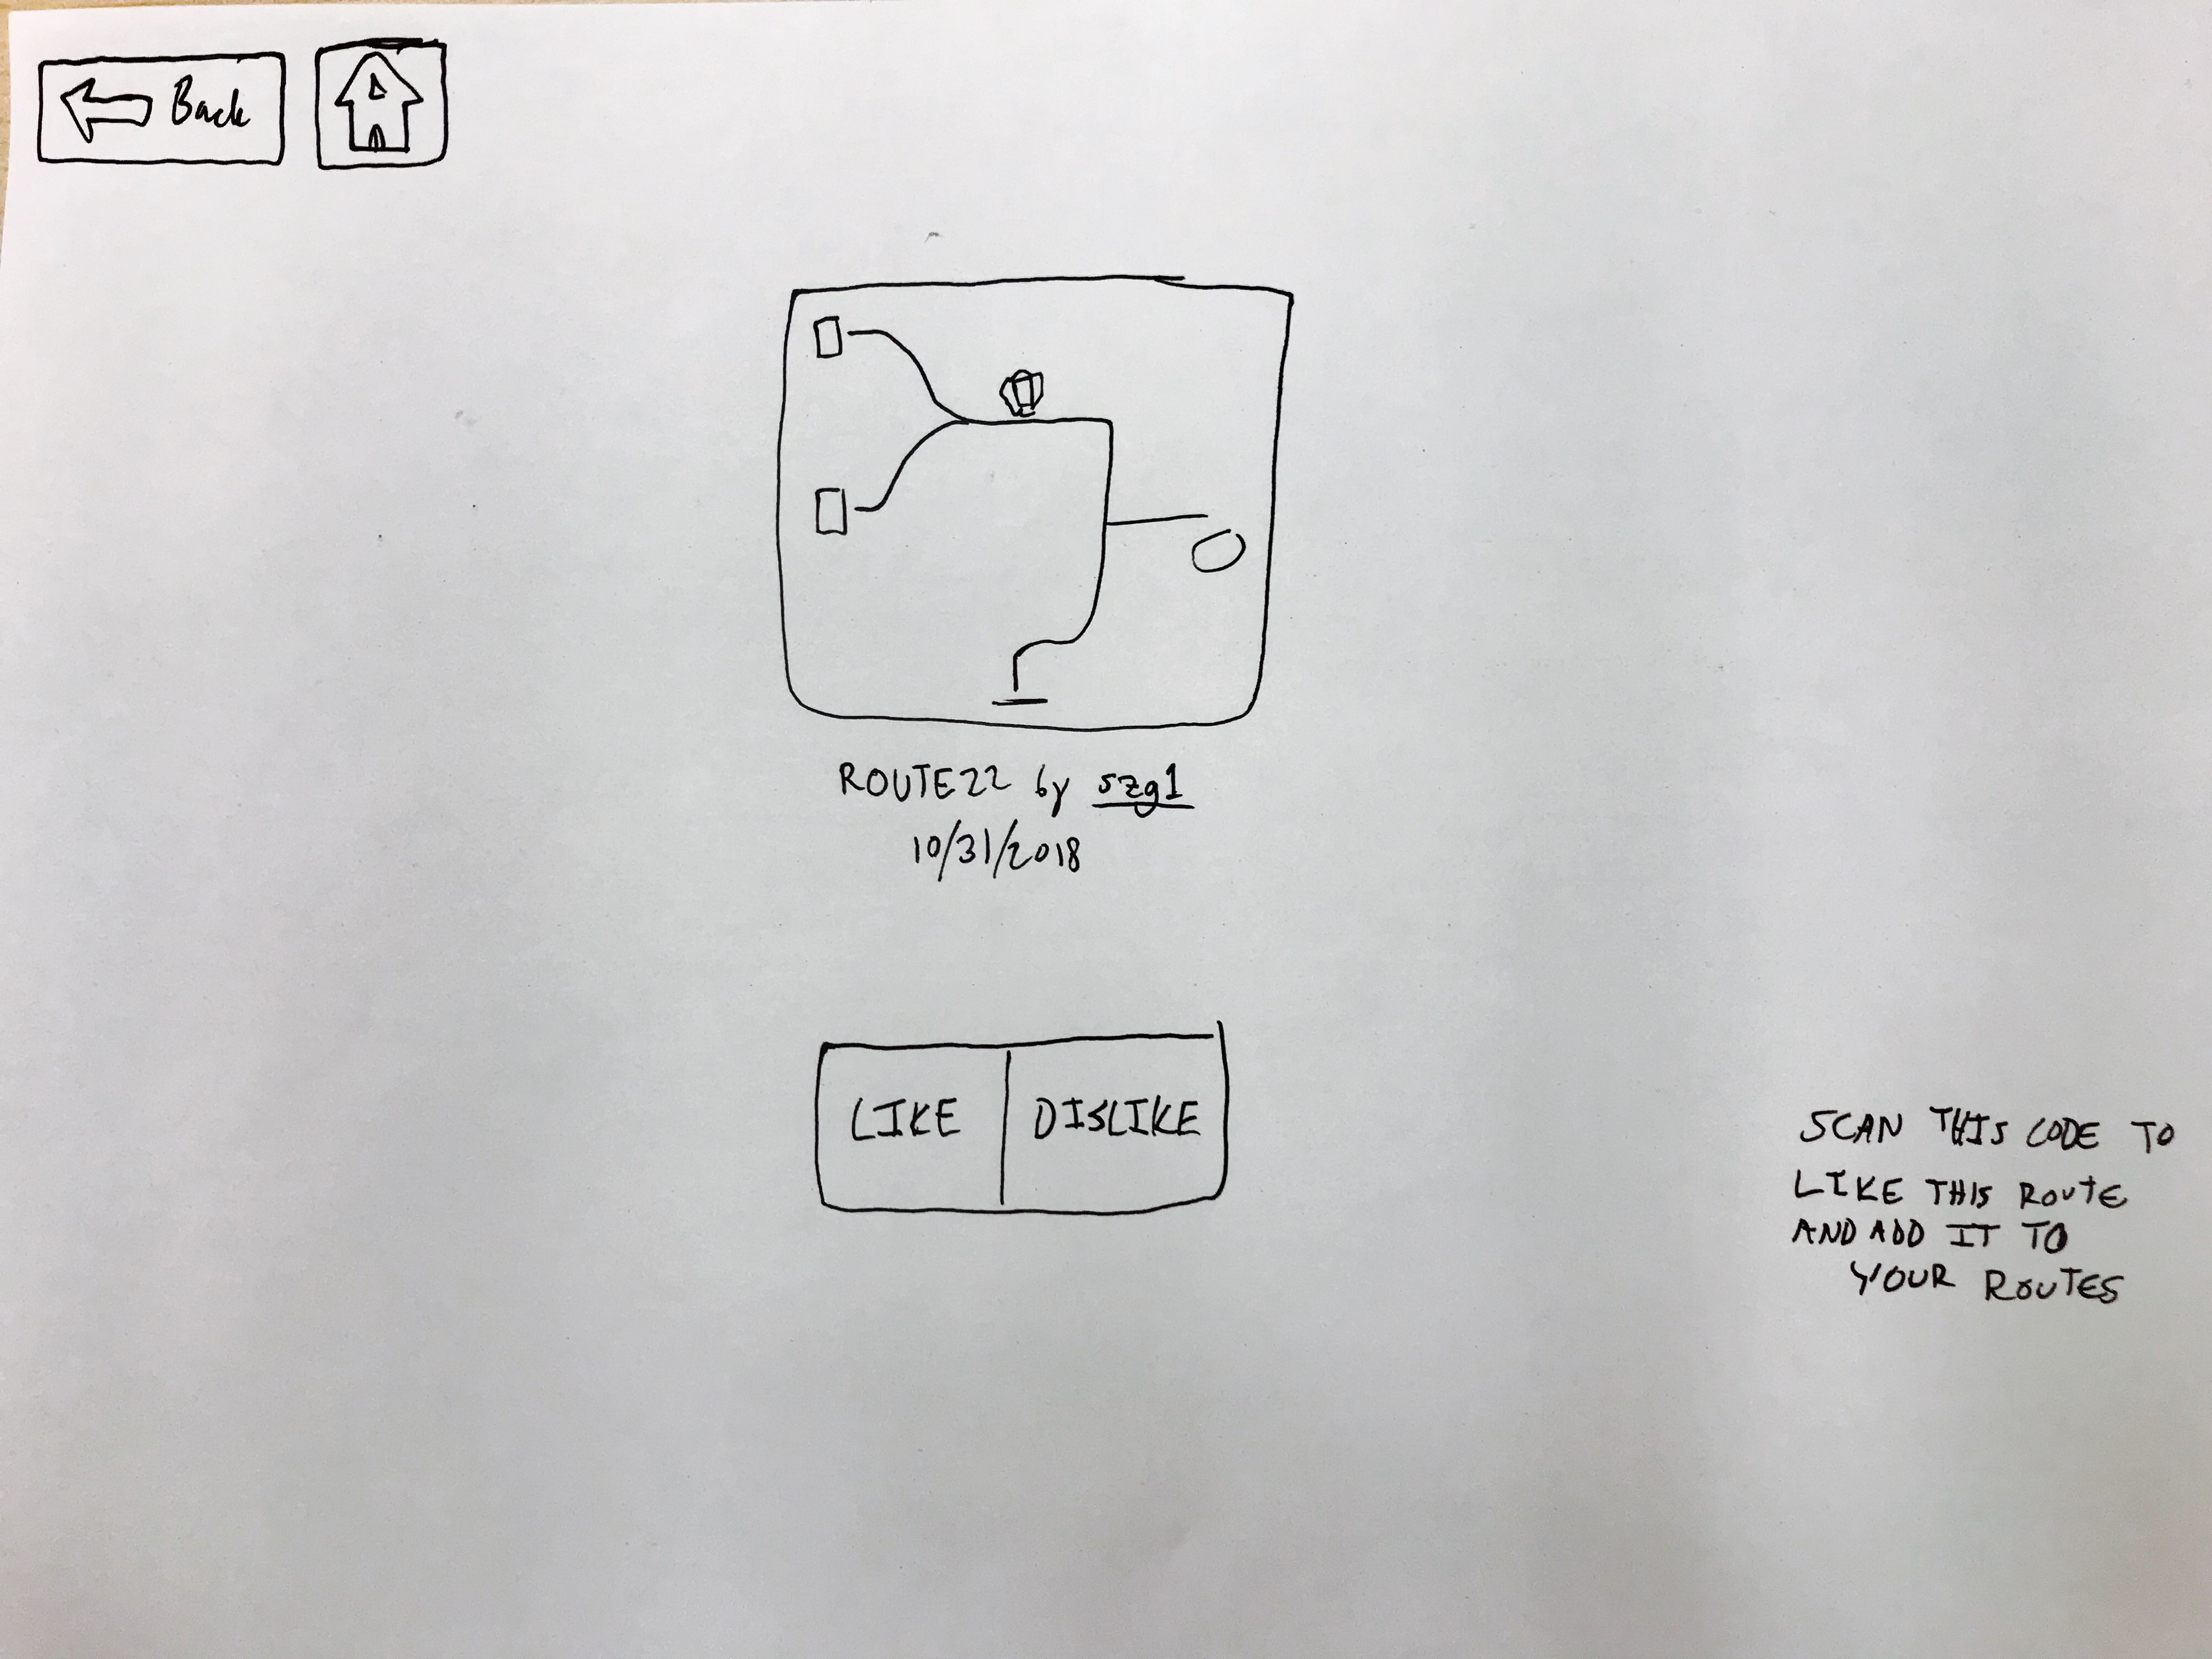 Back
ROUTE22 by szg1
10/31/2018
LIKE
DISLIKE
SCAN THIS CODE TO
LIKE THIS ROUTE
AND ADD IT TO
YOUR ROUTES